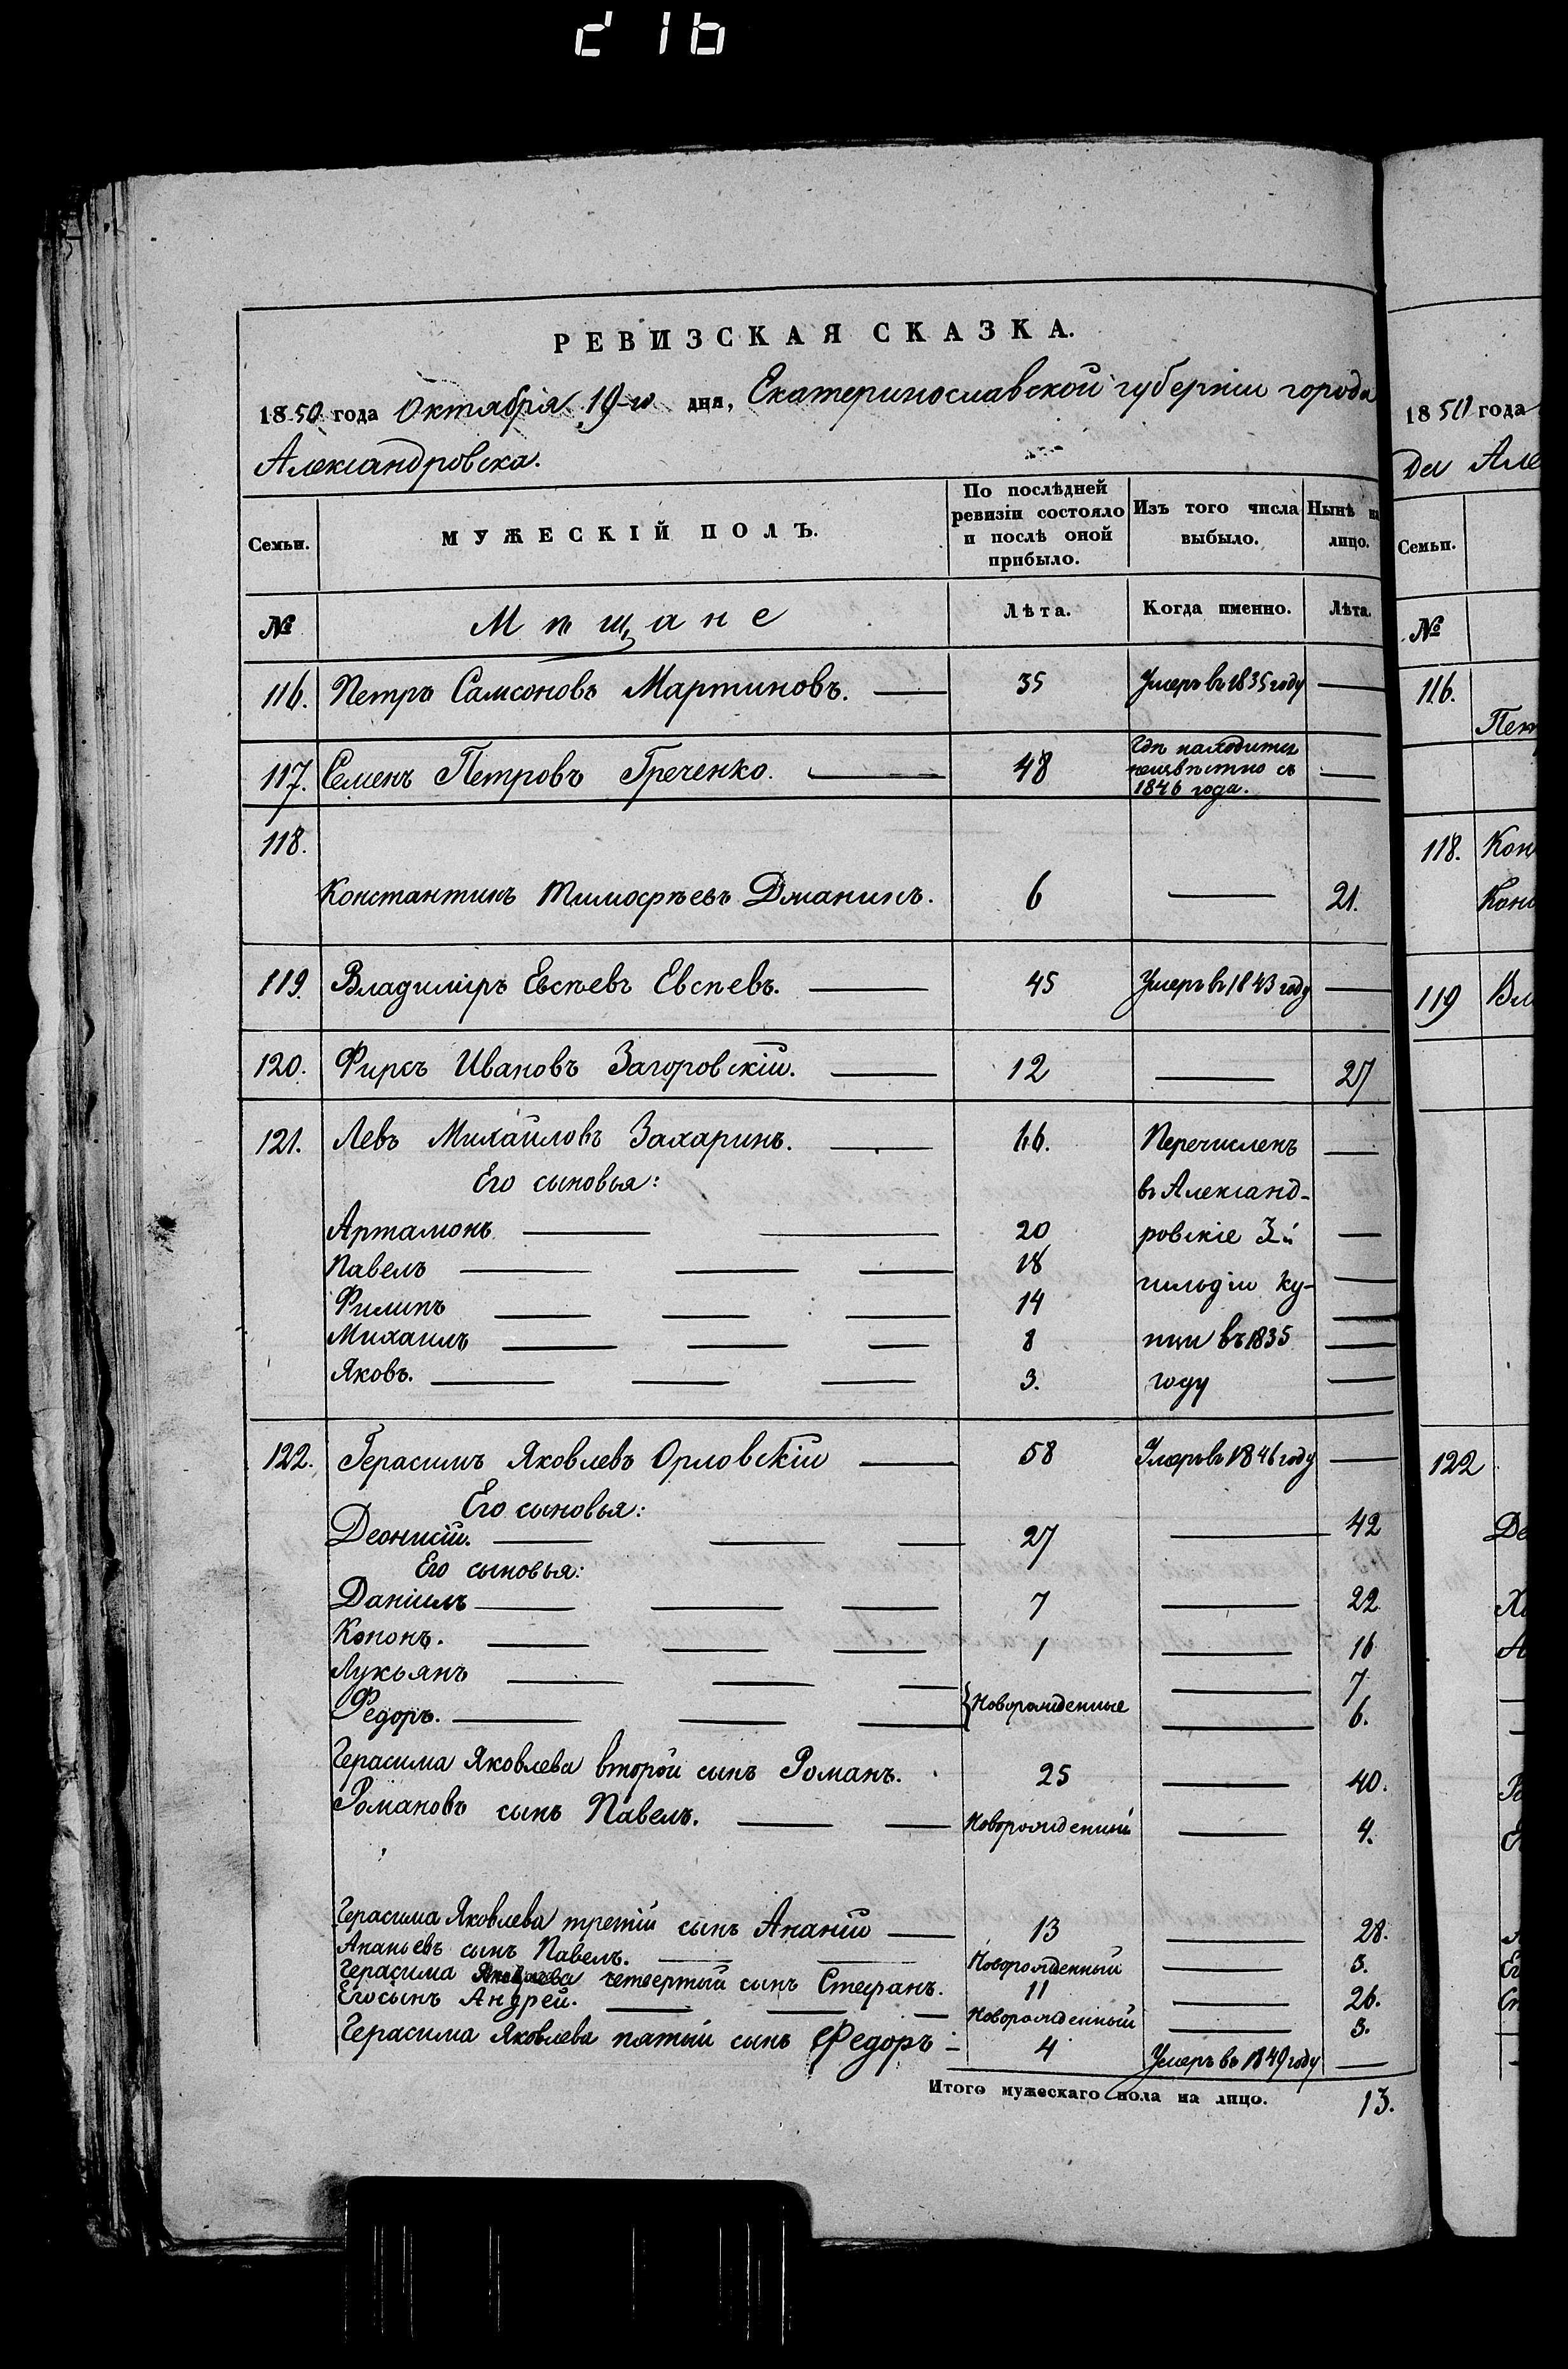 216
РЕВИЗСКАЯ СКАЗКА.
1850 года Октября 19-го дня, Екатеринославской губерніи города
Александровска.
Семьи. МУЖЕСКІЙ ПОЛЪ. По послѣдней ревизіи состояло и послѣ оной прибыло. Изъ того числа выбыло. Нынѣ на лицо.
№ Мѣщане Лѣта. Когда именно. Лѣта.
116. Петръ Самсоновъ Мартиновъ. 35 Умеръ въ 1835 году
117. Семенъ Петровъ Греченко. 48 Гдѣ находится неизвѣстно съ 1846 года.
118.
Константинъ Тимофѣевъ Дманинъ. 6 21.
119. Владиміръ Евсѣевъ Евсѣевъ. 45 Умеръ въ 1843 году
120. Фирсъ Ивановъ Загоровскій. 12 27
121. Левъ Михайловъ Захаринъ. 46. Перечисленъ
Его сыновья: въ Александ-
Артамонъ 20 ровскіе 3й
Павелъ 18
Филипъ 14 гильдіи ку-
Михаилъ 8 пцы въ 1835
Яковъ. 3. году
122. Герасимъ Яковлевъ Орловскій 58 Умеръ въ 1846 году
Его сыновья:
Деонисій. 27 42
Его сыновья:
Даніилъ 7 22
Кононъ. 1 16
Лукьянъ 7
Федоръ. Новорожденные 6.
Герасима Яковлева второй сынъ Романъ. 25 40.
Романовъ сынъ Павелъ. Новорожденный 4.
Герасима Яковлева третій сынъ Ананій 13 28.
Ананьевъ сынъ Павелъ. Новорожденный 3.
Герасима Яковлева четвертый сынъ Стефанъ. 11 26.
Его сынъ Андрей. Новорожденный 3.
Герасима Яковлева пятый сынъ Федоръ 4 Умеръ въ 1849 году
Итого мужескаго пола на лицо. 13.
1850 года
да Але
Семьи.
№
116.
Пет
118. Кон
Конс
119 Вл
122
Де